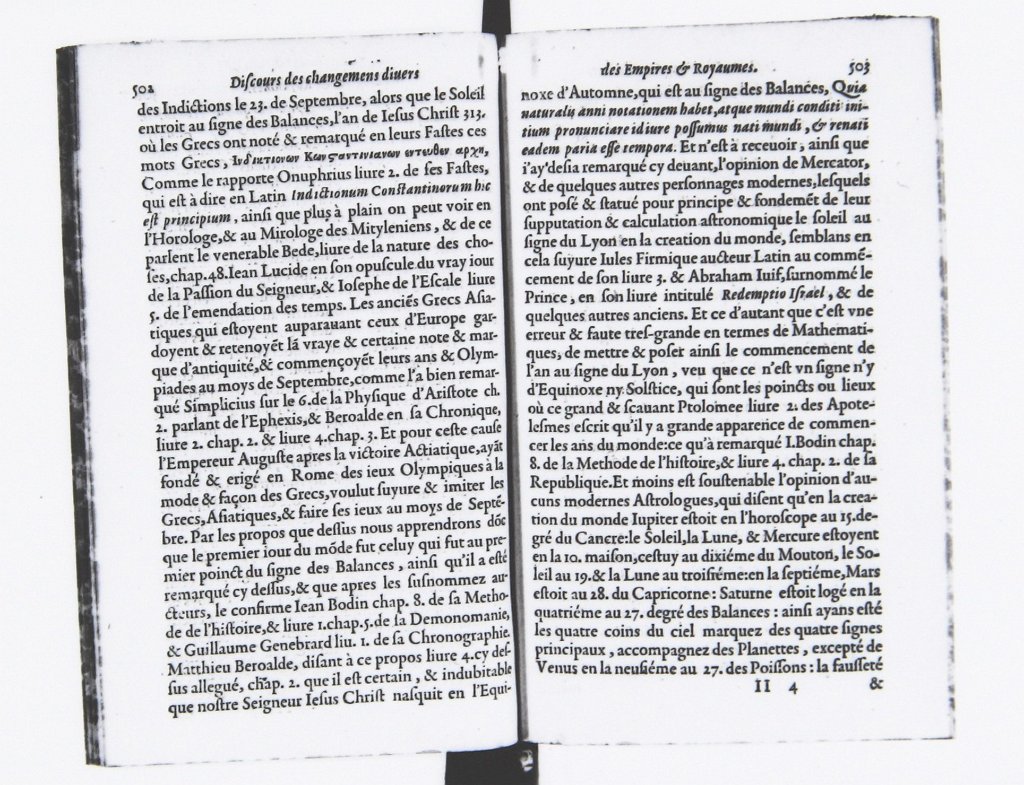 502
Diſcours des changemens diuers
des Indictions le 23. de Septembre, alors que le Soleil
entroit au ſigne des Balances,l'an de Ieſus Chriſt 313.
où les Grecs ont noté & remarqué en leurs Faſtes ces
mots Grecs, Ινδικτιονων Κωνςαντινιανων εντευθεν αρχη,
Comme le rapporte Onuphrius liure 2. de ſes Faſtes,
qui eſt à dire en Latin Indictionum Conſtantinorum hic
eſt principium, ainſi que plus à plain on peut voir en
l'Horologe,& au Mirologe des Mityleniens, & de ce
parlent le venerable Bede,liure de la nature des cho-
ſes,chap.48.Iean Lucide en ſon opuſcule du vray iour
de la Paſſion du Seigneur,& Ioſephe de l'Eſcale liure
5. de l'emendation des temps. Les anciẽs Grecs Aſia-
tiques qui eſtoyent auparauant ceux d'Europe gar-
doyent & retenoyẽt lá vraye & certaine note & mar-
que d'antiquité,& commençoyẽt leurs ans & Olym-
piades au moys de Septembre,comme l'a bien remar-
qué Simplicius ſur le 6.de la Phyſique d'Ariſtote ch.
2. parlant de l'Ephexis,& Beroalde en ſa Chronique,
liure 2. chap. 2. & liure 4.chap. 3. Et pour ceſte cauſe
l'Empereur Auguſte apres la victoire Actiatique,ayãt
fondé & erigé en Rome des ieux Olympiques à la
mode & façon des Grecs,voulut ſuyure & imiter les
Grecs,Aſiatiques,& faire ſes ieux au moys de Septẽ-
bre. Par les propos que deſſus nous apprendrons dõc
que le premier iour du mõde fut celuy qui fut au pre-
mier poinct du ſigne des Balances, ainſi qu'il a eſté
remarqué cy deſſus,& que apres les ſuſnommez au-
cteurs, le confirme Iean Bodin chap. 8. de ſa Metho-
de de l'hiſtoire,& liure 1.chap.5.de ſa Demonomanie,
& Guillaume Genebrard liu. 1. de ſa Chronographie.
Matthieu Beroalde, diſant à ce propos liure 4.cy deſ-
ſus allegué, chap. 2. que il eſt certain, & indubitable
que noſtre Seigneur Ieſus Chriſt naſquit en l'Equi-
des Empires & Royaumes.
503
noxe d'Automne,qui eſt au ſigne des Balances, Quia
naturalis anni notationem habet,atque mundi conditi ini-
tium pronunciare id iure poſſumus nati mundi, & renati
eadem paria eſſe tempora. Et n'eſt à receuoir, ainſi que
i'ay'deſia remarqué cy deuant,l'opinion de Mercator,
& de quelques autres perſonnages modernes,leſquels
ont poſé & ſtatué pour principe & fondemẽt de leur
ſupputation & calculation aſtronomique le ſoleil au
ſigne du Lyon en la creation du monde, ſemblans en
cela ſuyure Iules Firmique aucteur Latin au commẽ-
cement de ſon liure 3. & Abraham Iuif,ſurnommé le
Prince, en ſon liure intitulé Redemptio Iſrael, & de
quelques autres anciens. Et ce d'autant que c'eſt vne
erreur & faute tres-grande en termes de Mathemati-
ques, de mettre & poſer ainſi le commencement de
l'an au ſigne du Lyon, veu que ce n'eſt vn ſigne n'y
d'Equinoxe ny Solſtice, qui ſont les poincts ou lieux
où ce grand & ſcauant Ptolomee liure 2. des Apote-
leſmes eſcrit qu'il y a grande apparence de commen-
cer les ans du monde:ce qu'à remarqué I.Bodin chap.
8. de la Methode de l'hiſtoire,& liure 4. chap. 2. de ſa
Republique.Et moins eſt ſouſtenable l'opinion d'au-
cuns modernes Aſtrologues,qui diſent qu'en la crea-
tion du monde Iupiter eſtoit en l'horoſcope au 15.de-
gré du Cancre:le Soleil,la Lune, & Mercure eſtoyent
en la 10. maiſon,ceſtuy au dixiéme du Mouton, le So-
leil au 19.& la Lune au troiſiéme:en la ſeptiéme,Mars
eſtoit au 28. du Capricorne: Saturne eſtoit logé en la
quatriéme au 27. degré des Balances : ainſi ayans eſté
les quatre coins du ciel marquez des quatre ſignes
principaux, accompagnez des Planettes, excepté de
Venus en la neuſiéme au 27. des Poiſſons : la fauſſeté
II 4
&